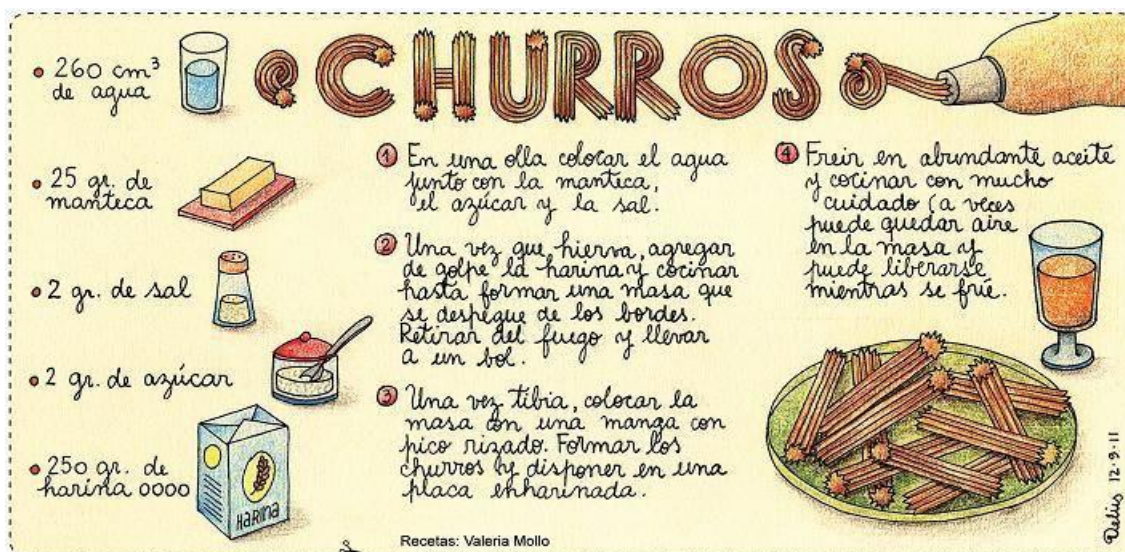 CHURROS
• 260 cm³
de agua
• 25 gr. de
manteca
• 2 gr. de sal
• 2 gr. de azúcar
• 250 gr. de
harina 0000
HARINA
1 En una olla colocar el agua
junto con la manteca,
el azúcar y la sal.
2 Una vez que hierva, agregar
de golpe la harina y cocinar
hasta formar una masa que
se despegue de los bordes.
Retirar del fuego y llevar
a un bol.
3 Una vez tibia, colocar la
masa con una manga con
pico rizado. Formar los
churros y disponer en una
placa enharinada.
4 Freir en abundante aceite
y cocinar con mucho
cuidado (a veces
puede quedar aire
en la masa y
puede liberarse
mientras se fríe.
Recetas: Valeria Mollo
Delius 12.9.11